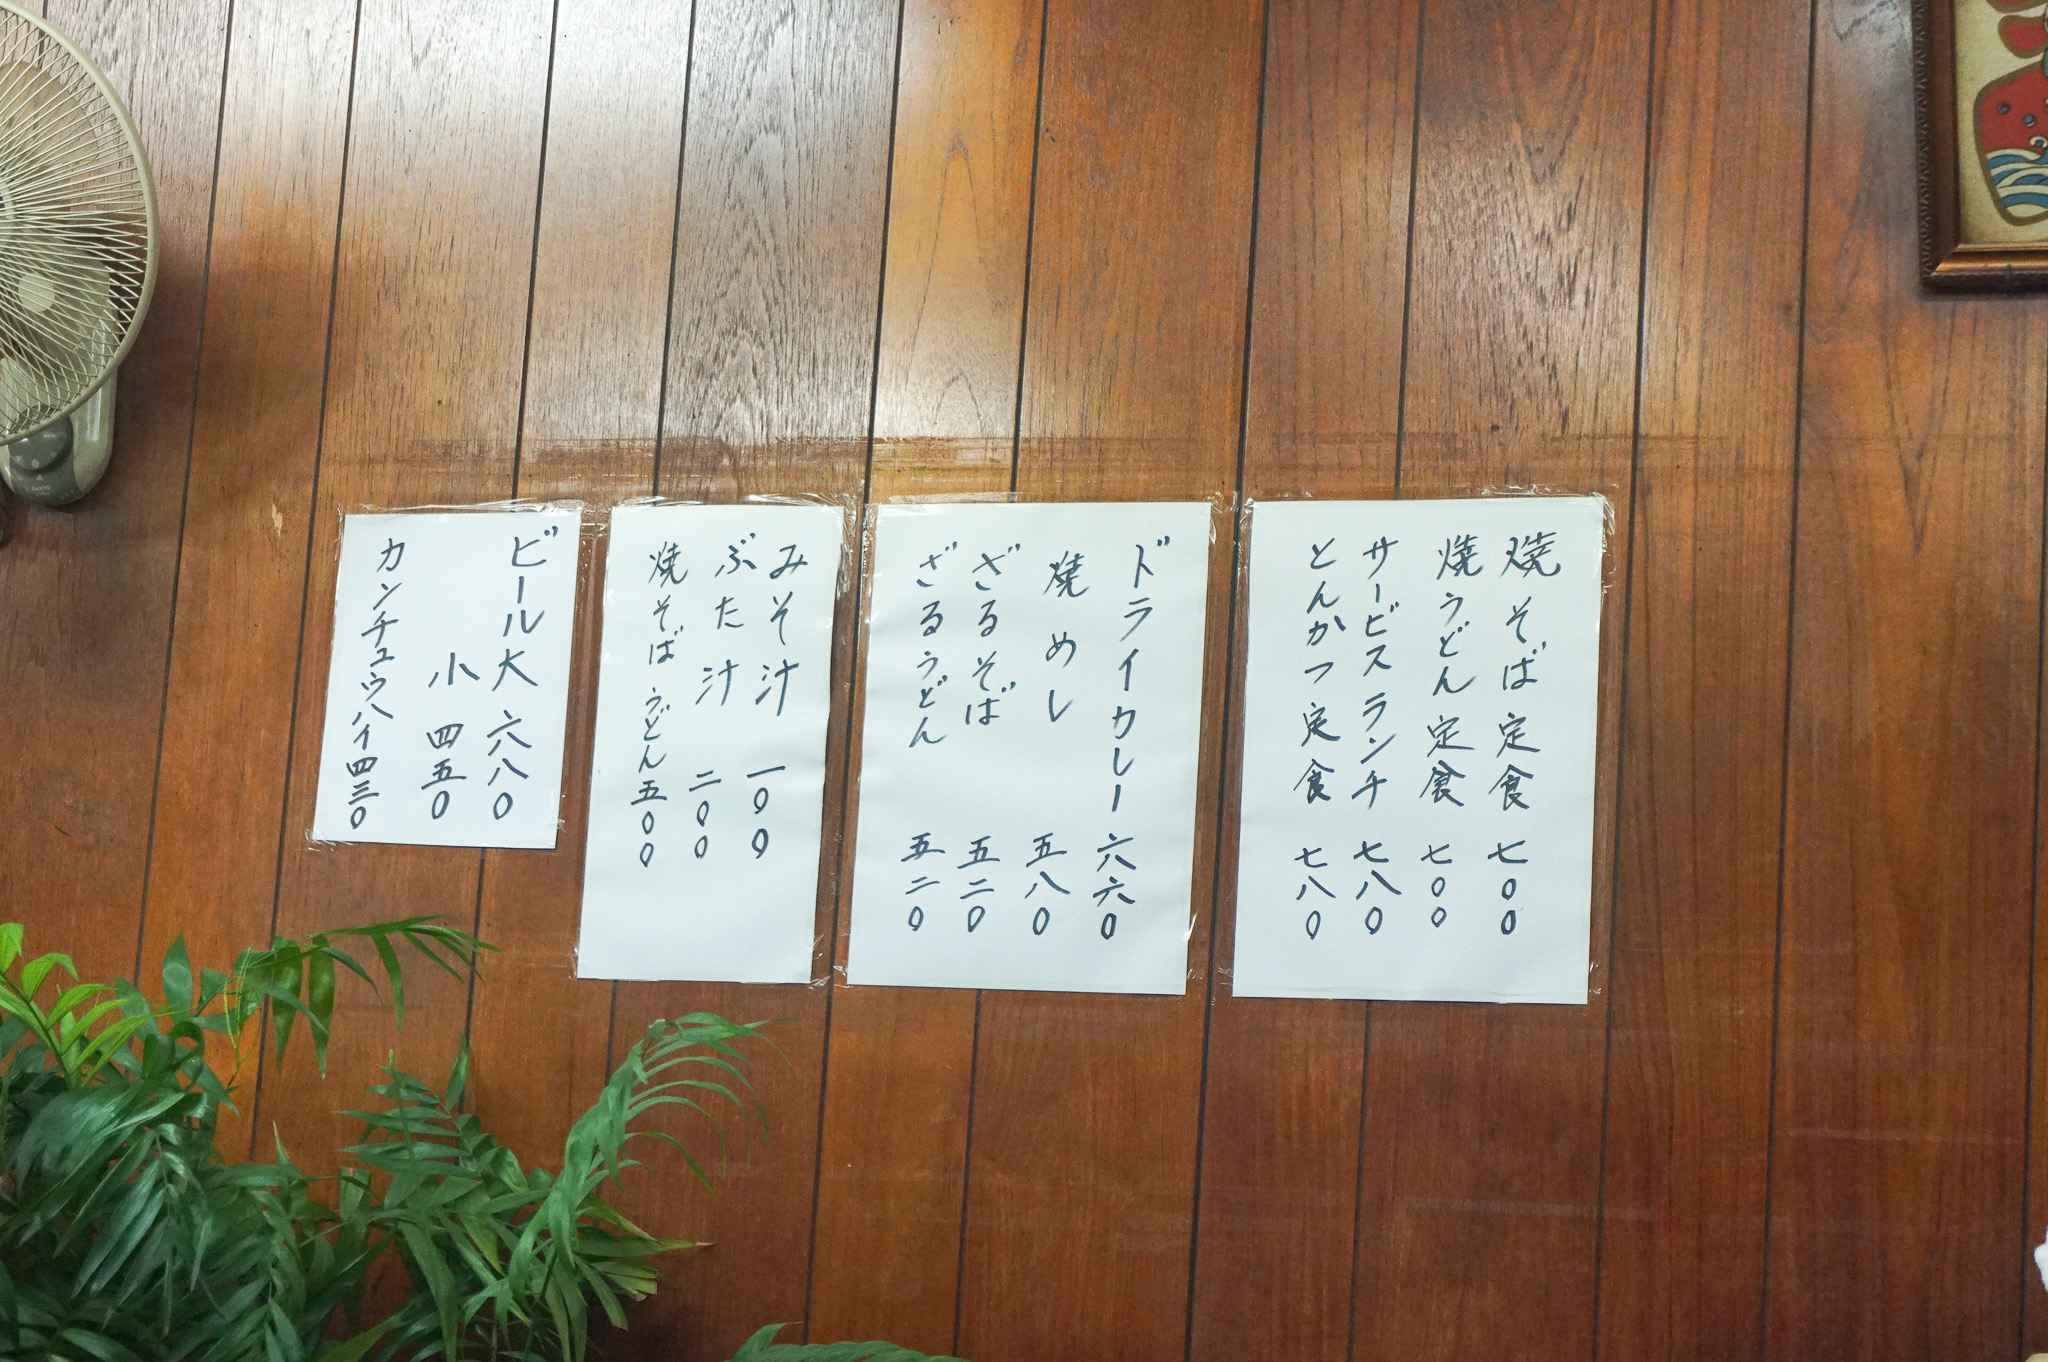 焼そば定食 七〇〇
焼うどん定食 七〇〇
サービスランチ 七八〇
とんかつ定食 七八〇
ドライカレー 六六〇
焼めし 五八〇
ざるそば 五二〇
ざるうどん 五二〇
みそ汁 一〇〇
ぶた汁 二〇〇
焼そば うどん 五〇〇
ビール大 六八〇
小 四五〇
カンチュウハイ 四三〇
SANYO